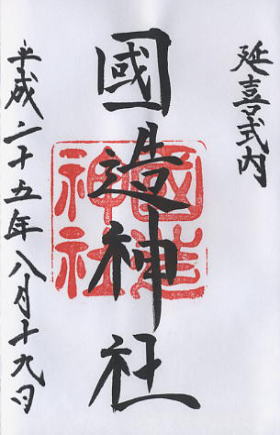 延喜式内
國造神社
國造神社
平成二十五年八月十九日